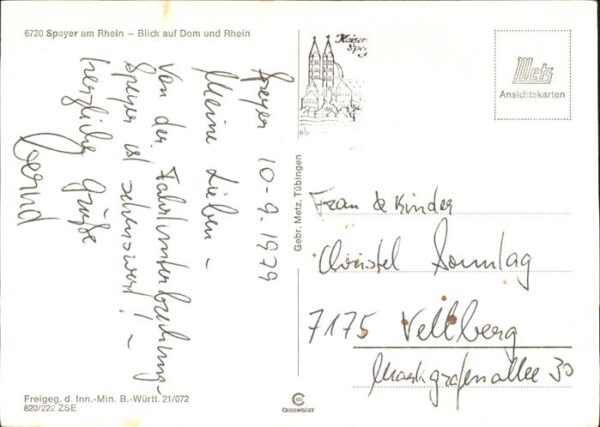 6720 Speyer am Rhein – Blick auf Dom und Rhein
Speyer 10-9-1979
Meine Lieben –
Von der Fahrtunterbrechung –
Speyer ist sehenswert! –
herzliche Grüße
Bernd
Kaiser
Spey
Metz
Ansichtskarten
Gebr. Metz, Tübingen
Frau & Kinder
Christel Sonntag
7175 Vellberg
Markgrafenallee 30
Freigeg. d. Inn.-Min. B.-Württ. 21/072
820/222 ZSE